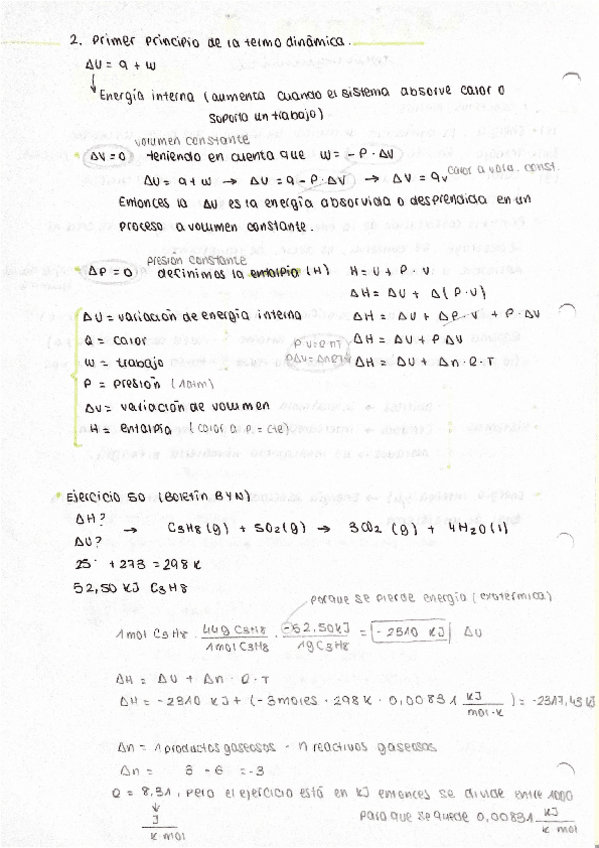 2. Primer principio de la termodinámica.
ΔU = q + w
↓ Energía interna (aumenta cuando el sistema absorve calor o
soporta un trabajo)
volumen constante
· ΔV = 0 teniendo en cuenta que w = - P · ΔV
ΔU = q + w → ΔU = q - P · ΔV → ΔV = qv calor a volu. const.
Entonces la ΔU es la energía absorvida o desprendida en un
proceso a volumen constante.
presión constante
· ΔP = 0 definimos la entalpía (H) H = U + P · V
ΔH = ΔU + Δ(P · V)
ΔU = variación de energía interna ΔH = ΔU + ΔP · V + P · ΔV
Q = calor PV = n R T ΔH = ΔU + P ΔV
w = trabajo PΔV = ΔnRTV ΔH = ΔU + Δn · R · T
P = presión (1atm)
ΔV = variación de volumen
H = entalpía (calor a p = cte)
· Ejercicio 50 (Boletín BYN)
ΔH? → C3H8 (g) + 5O2 (g) → 3CO2 (g) + 4H2O (l)
ΔU?
25° + 273 = 298 K
52,50 KJ C3H8
porque se pierde energía (exotérmica)
1 mol C3H8 · 44g C3H8 / 1 mol C3H8 · -52,50KJ / 1g C3H8 = -2310 KJ ΔU
ΔH = ΔU + Δn · R · T
ΔH = -2310 KJ + (-3moles · 298 K · 0,00831 KJ / mol·K) = -2317,43 KJ
Δn = n productos gaseosos - n reactivos gaseosos
Δn = 3 - 6 = -3
R = 8,31, pero el ejercicio está en KJ entonces se divide entre 1000
↓ para que se quede 0,00831 KJ / K mol
J / K mol